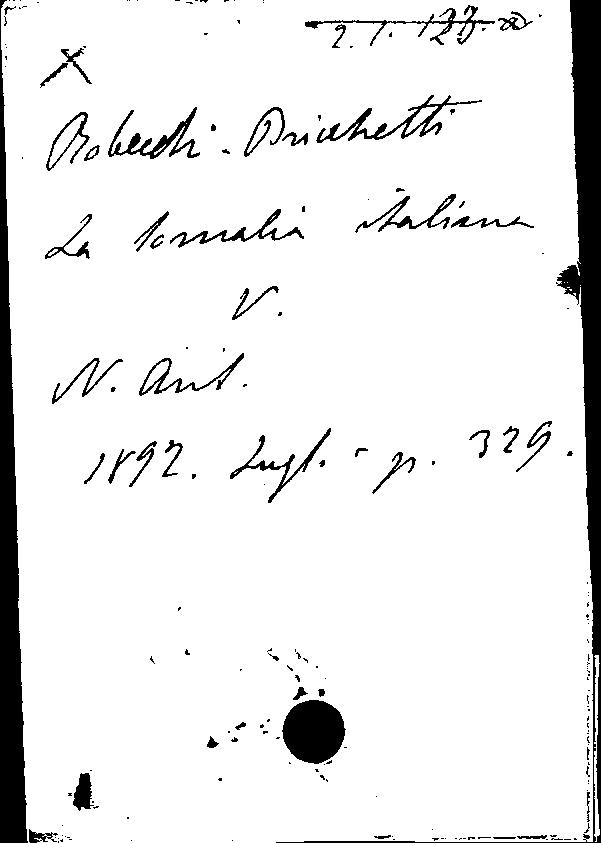 2. 1. 123. a
X
Robecchi - Bricchetti
La Somalia italiana
V.
N. Ant.
1892. Lugl. - p. 329.